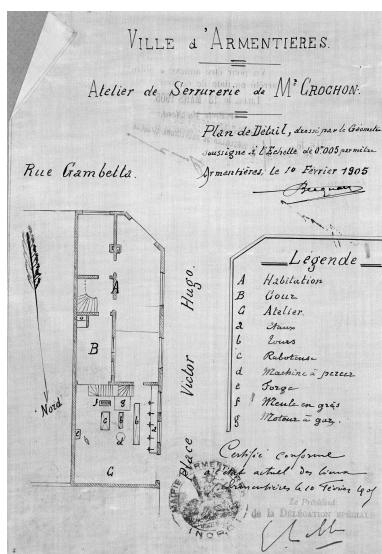 VILLE d'ARMENTIERES.
Atelier de Serrurerie de Mr CROCHON.
Plan de Détail, dressé par le Géomètre
soussigné à l'Echelle de 0m005 par mètre
Armentières, le 10 Février 1905
Rue Gambetta.
Place Victor Hugo.
Nord
A
B
C
Légende
A Habitation
B Cour
C Atelier
a Etaux
b Tours
c Raboteuse
d Machine à percer
e Forge
f Meule en grès
g Moteur à gaz.
Certifié conforme
à l'état actuel des lieux
Armentières le 10 Février 1905
Le Président
de la DÉLÉGATION SPÉCIALE
MAIRIE D'ARMENTIERES
(NORD)